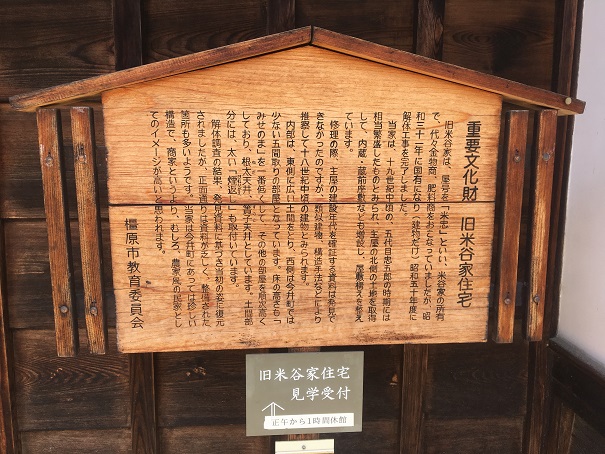 重要文化財　旧米谷家住宅
旧米谷家は、屋号を「米忠」といい、米谷家の所有
で、代々金物商、肥料商をおこなっていましたが、昭
和三十一年に国有になり（建物だけ）、昭和五十年度に
解体工事を完了しました。
当家は、十九世紀中頃の、五代目忠五郎の時期には
相当繁盛したものとみられ、主屋の北側の土地を取得
して、内蔵・蔵前座敷なども増設し、屋敷構えを整え
ています。
修理の際、主屋の建設年代を確証する資料は発見で
きなかったのですが、類似建物、構造手法などにより
推察して十八世紀中頃の建物とみられます。
内部は、東側に広い土間をとり、西側は今井町では
少ない五間取りの部屋となっています。床の高さも「
みせのま」を一番低くして、その他の部屋を順次高く
しており、根太天井、簀子天井としています。土間部
分には、太い「煙返」も取付いています。
解体調査の結果、発見資料に基づき当初の姿に復元
されましたが、正面通りは資料が乏しく、整備された
箇所も多いようです。当家は今井町にあっては珍しい
構造で、商家というより、むしろ、農家風の民家とし
てのイメージが高いと思われます。
橿原市教育委員会
旧米谷家住宅
見学受付
正午から1時間休館